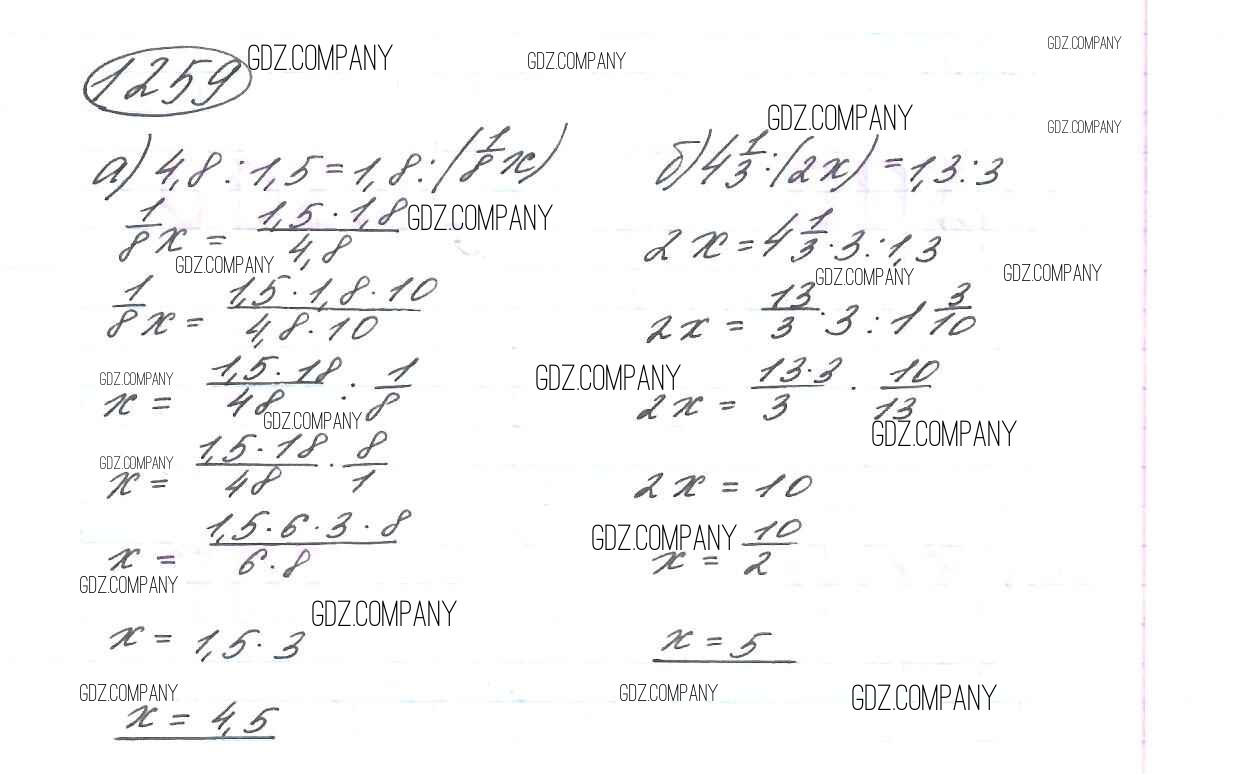 1259 GDZ.COMPANY GDZ.COMPANY GDZ.COMPANY
GDZ.COMPANY GDZ.COMPANY
а) 4,8 : 1,5 = 1,8 : (1/8 x)
1/8 x = (1,5 · 1,8)/4,8 GDZ.COMPANY
GDZ.COMPANY
1/8 x = (1,5 · 1,8 · 10)/(4,8 · 10)
GDZ.COMPANY
x = (1,5 · 18)/48 : 1/8
GDZ.COMPANY
GDZ.COMPANY
x = (1,5 · 18)/48 · 8/1
x = (1,5 · 6 · 3 · 8)/(6 · 8)
GDZ.COMPANY
GDZ.COMPANY
x = 1,5 · 3
GDZ.COMPANY
x = 4,5
б) 4 1/3 : (2x) = 1,3 : 3
2x = 4 1/3 · 3 : 1,3
GDZ.COMPANY GDZ.COMPANY
2x = 13/3 · 3 : 1 3/10
GDZ.COMPANY
2x = (13·3)/3 · 10/13
GDZ.COMPANY
2x = 10
GDZ.COMPANY
x = 10/2
x = 5
GDZ.COMPANY GDZ.COMPANY